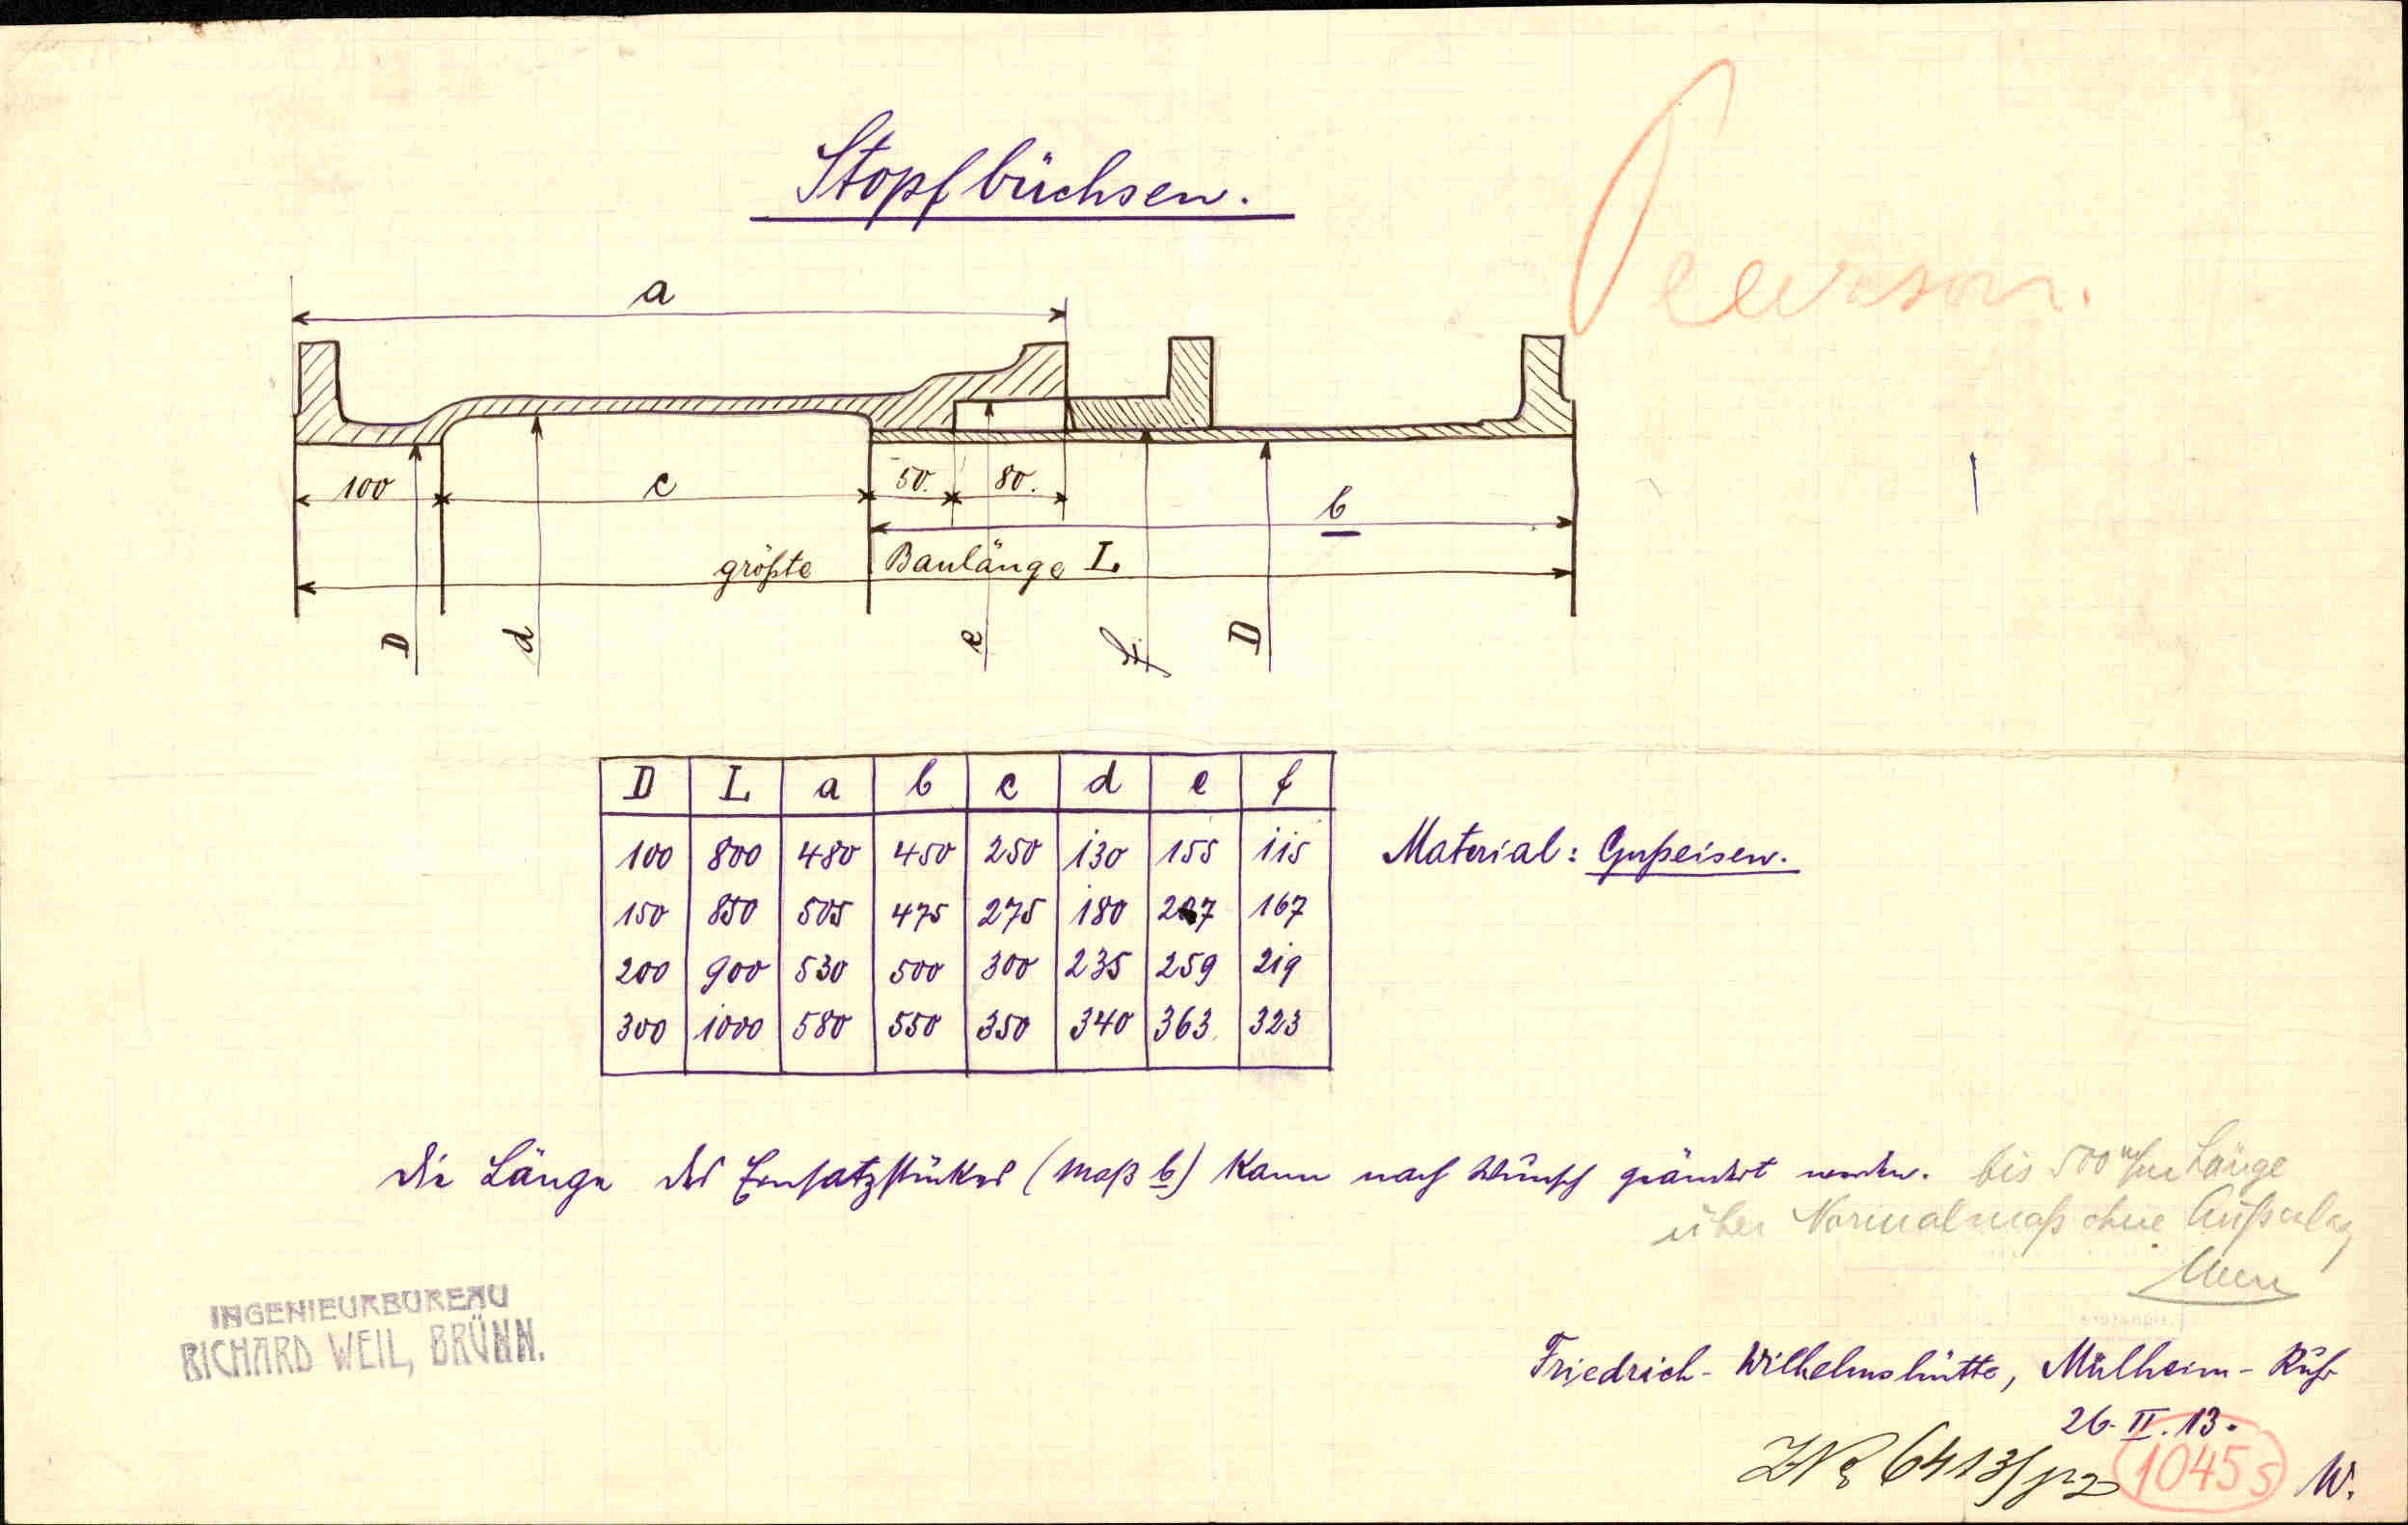 Stopfbüchsen.
a
100 c 50. 80.
b
größte Baulänge L.
D d e f D
D L a b c d e f
100 800 480 450 250 130 155 115
150 850 505 475 275 180 207 167
200 900 530 500 300 235 259 219
300 1000 580 550 350 340 363 323
Material: Gußeisen.
Die Länge des Einsatzstückes (Maß b) kann nach Wunsch geändert werden.
bis 500 m/m Länge
über Normalmaß ohne
INGENIEURBUREAU
RICHARD WEIL, BRÜNN.
Friedrich-Wilhelmshütte, Mülheim-Ruhr
26.II.13.
6413/
1045 s
W.